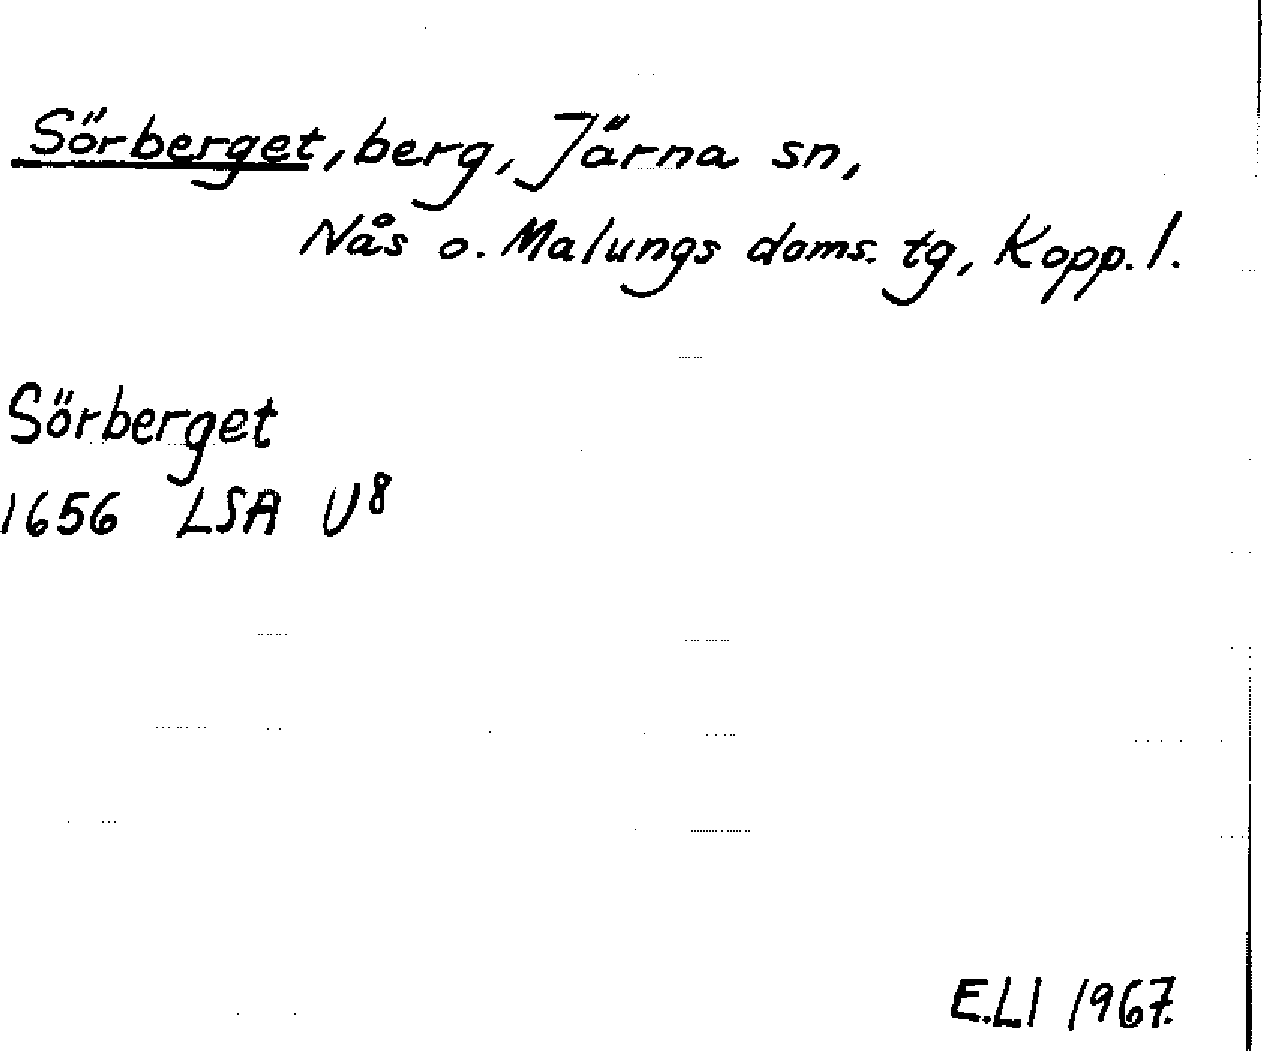 Sörberget, berg, Järna sn,
Nås o. Malungs doms. tg, Kopp. l.
Sörberget
1656 LSA U8
E.Ll 1967.